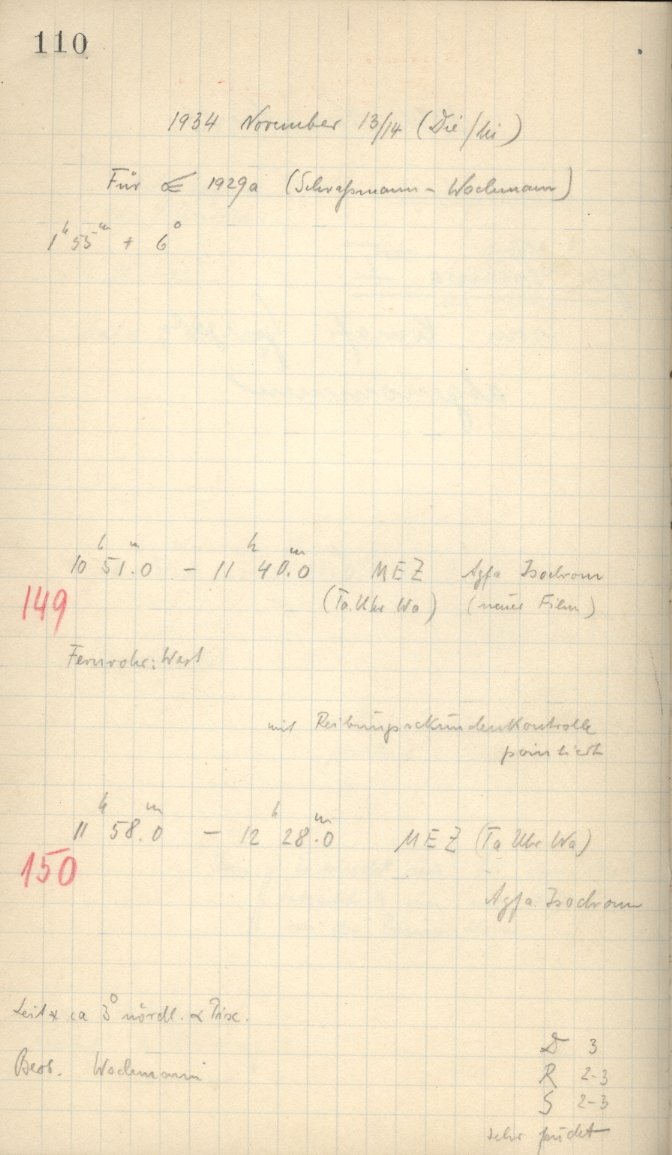 110
1934 November 13/14 (Die/Mi)
Für ☄ 1929a (Schwaßmann - Wachmann)
1ʰ 55ᵐ + 6°
10ʰ 51.ᵐ0 - 11ʰ 40.ᵐ0 MEZ Agfa Isochrom
149 (Ta. Uhr Wa) (neuer Film)
Fernrohr: West
mit Reibungssekundenkontrolle
pointiert
11ʰ 58.ᵐ0 - 12ʰ 28.ᵐ0 MEZ (Ta Uhr Wa)
150
Agfa Isochrom
Leit* ca 3° nördl. α Pisc.
D 3
Beob. Wachmann
R 2-3
S 2-3
sehr feucht